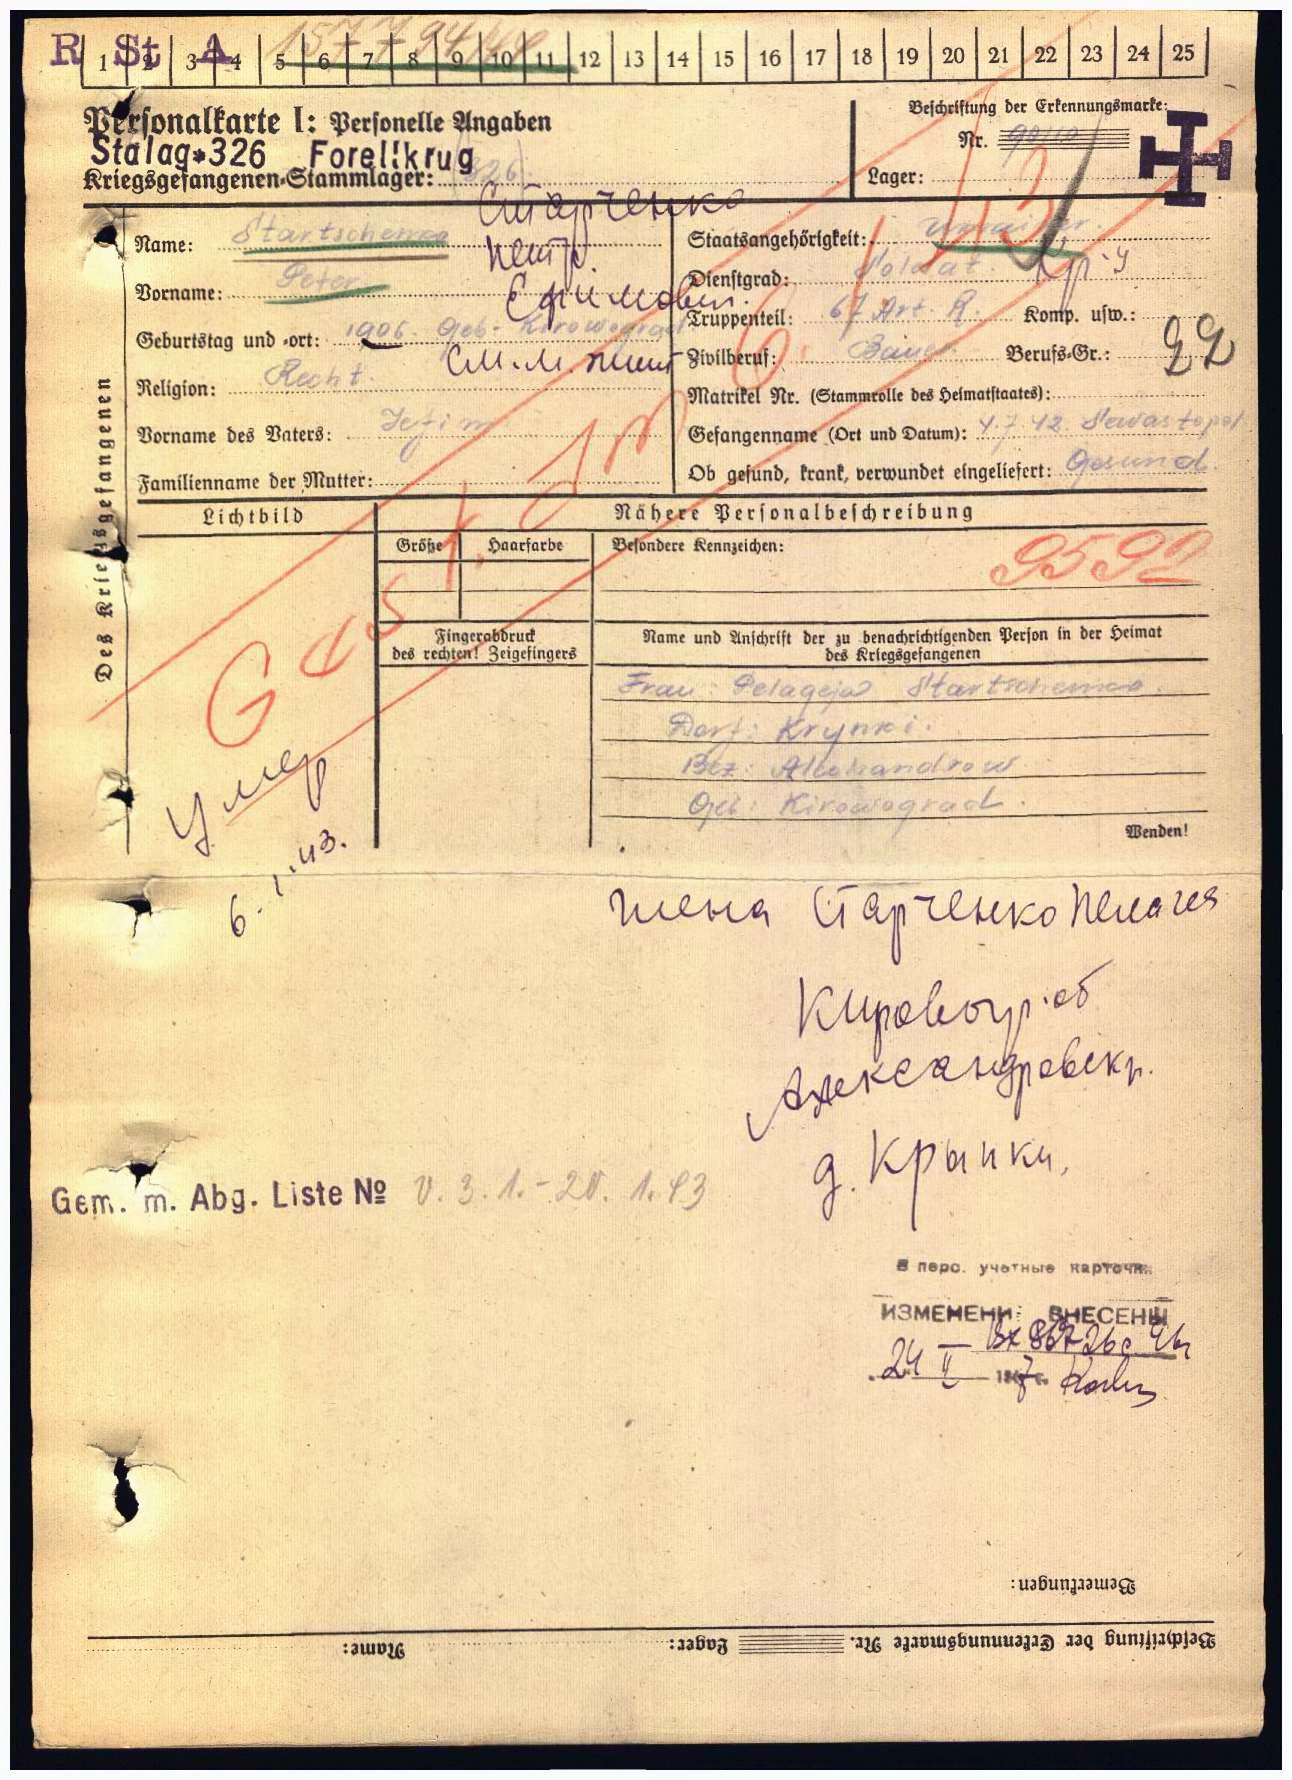 R St A
1 2 3 4 5 6 7 8 9 10 11 12 13 14 15 16 17 18 19 20 21 22 23 24 25
Personalkarte I: Personelle Angaben
Stalag *326 Forellkrug
Kriegsgefangenen-Stammlager: 326
Beschriftung der Erkennungsmarke:
Nr.
Lager:
Des Kriegsgefangenen
Старченко
Name: Startschenko
Петр.
Vorname: Peter
Ефимович.
Geburtstag und -ort: 1906 Geb. Kirowograd
См. м. жит
Religion: Recht.
Vorname des Vaters: Jefim
Familienname der Mutter:
Staatsangehörigkeit:
Dienstgrad: Soldat.
Кр-ц
Truppenteil: 67 Art. R. Komp. usw.:
Zivilberuf: Bauer Berufs-Gr.:
Matrikel Nr. (Stammrolle des Heimatstaates):
Gefangenname (Ort und Datum): 4.7.42. Sewastopol
Ob gesund, krank, verwundet eingeliefert: Gesund.
Lichtbild
Nähere Personalbeschreibung
Größe Haarfarbe Besondere Kennzeichen:
9592
Gest. am 6.1.43
Fingerabdruck
des rechten! Zeigefingers
Name und Anschrift der zu benachrichtigenden Person in der Heimat
des Kriegsgefangenen
Frau: Pelageja Startschenko.
Dorf: Krynki.
Bez: Alexandrow
Geb: Kirowograd.
Wenden!
Умер
6.1.43.
жена Старченко Пелагея
Кировогр. об
Александровск р.
д. Крынки,
Gem. m. Abg. Liste № v. 3.1.-20.1.43
В перс. учетные карточки
ИЗМЕНЕНИ ВНЕСЕНЫ
24 II
Bemerkungen:
Beschriftung der Erkennungsmarke Nr. Lager: Name: